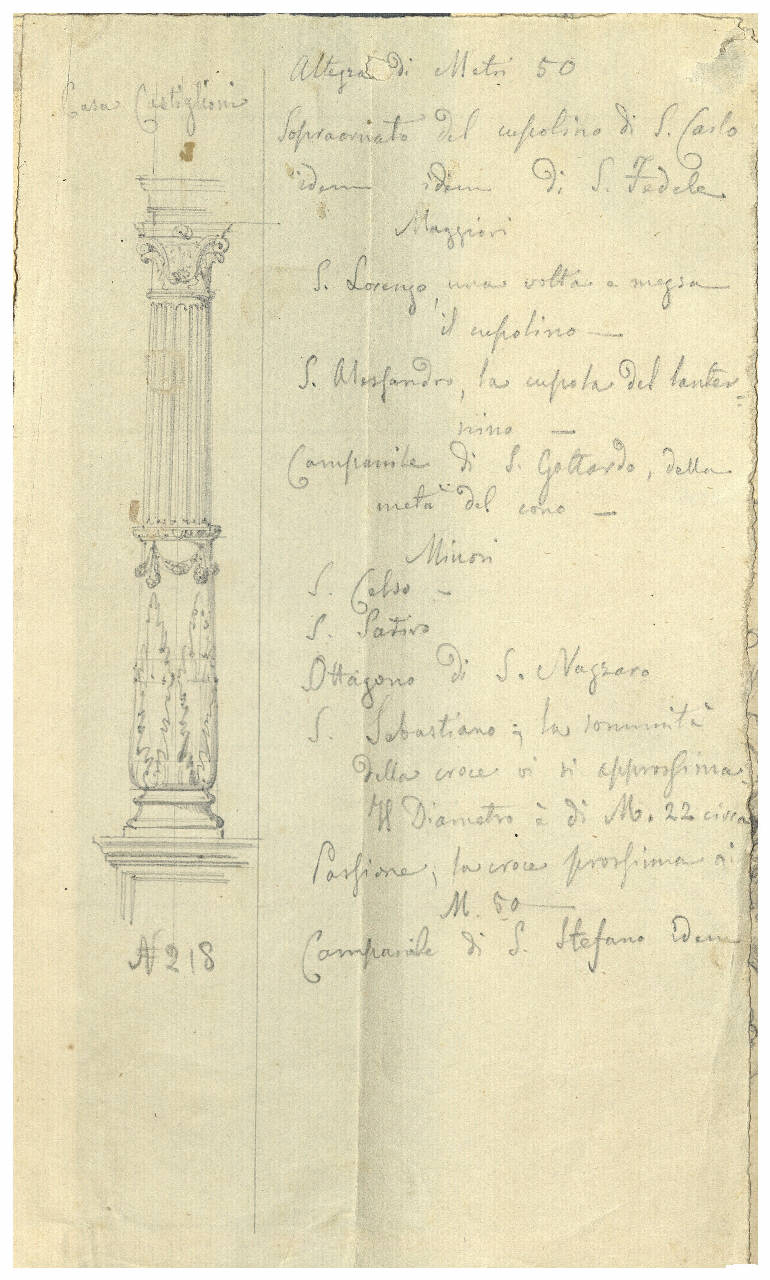 Casa Castiglioni
N 218
Altezza di Metri 50
Sopraornato del cupolino di S. Carlo
idem idem di S. Fedele
Maggiori
S. Lorenzo, una volta e mezza
il cupolino —
S. Alessandro, la cupola del lanter=
nino —
Campanile di S. Gottardo, della
metà del cono —
Minori
S. Celso -
S. Satiro
Ottagono di S. Nazzaro
S. Sebastiano; la sommità
della croce vi si approssima.
Il Diametro è di M. 22 circa
Passione; la croce prossima ai
M. 50 —
Campanile di S. Stefano idem